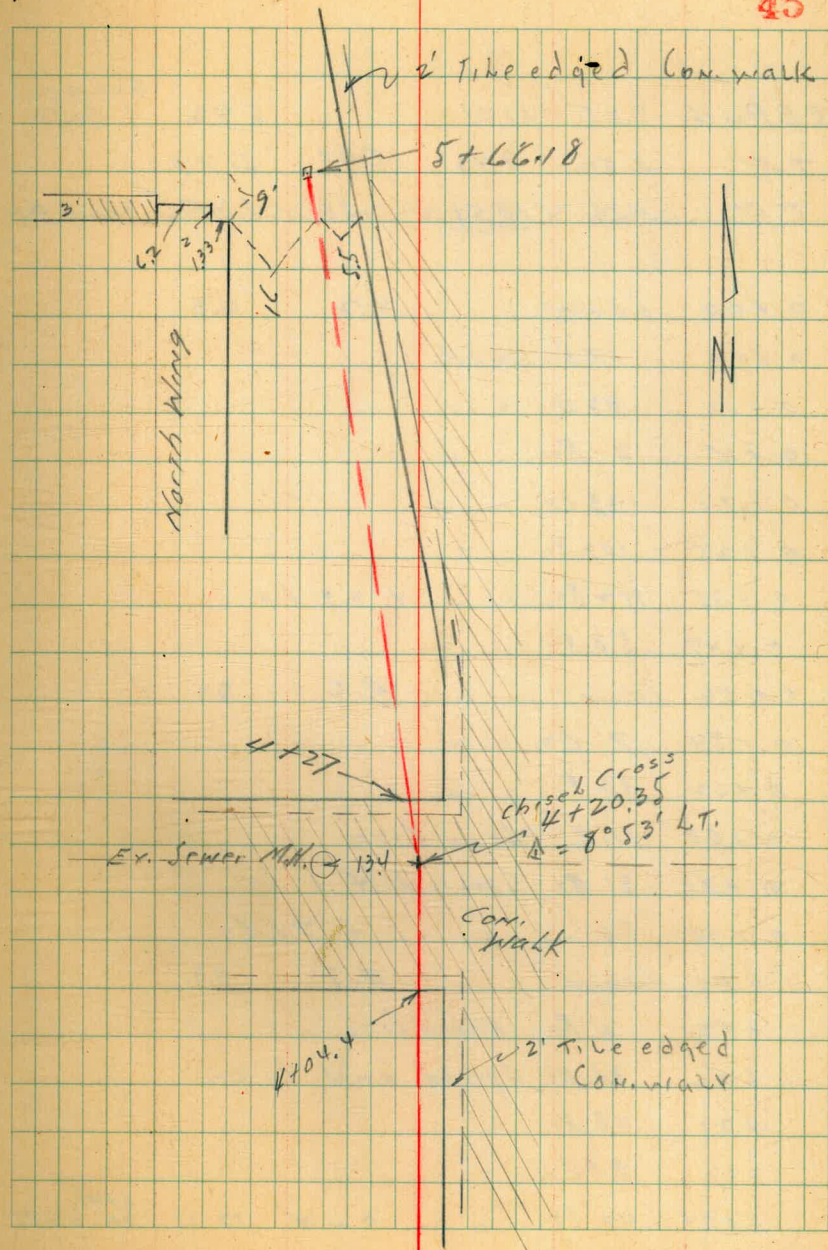 45
2' Tile edged Con. walk
5+66.18
3'
9'
6.2
2
1.33
16
5.5
North Wing
N
4+27
Chisel Cross
4+20.35
Δ = 8° 53' LT.
Ex. Sewer M.H. 13.4
Con.
Walk
4+04.4
2' Tile edged
Con. walk